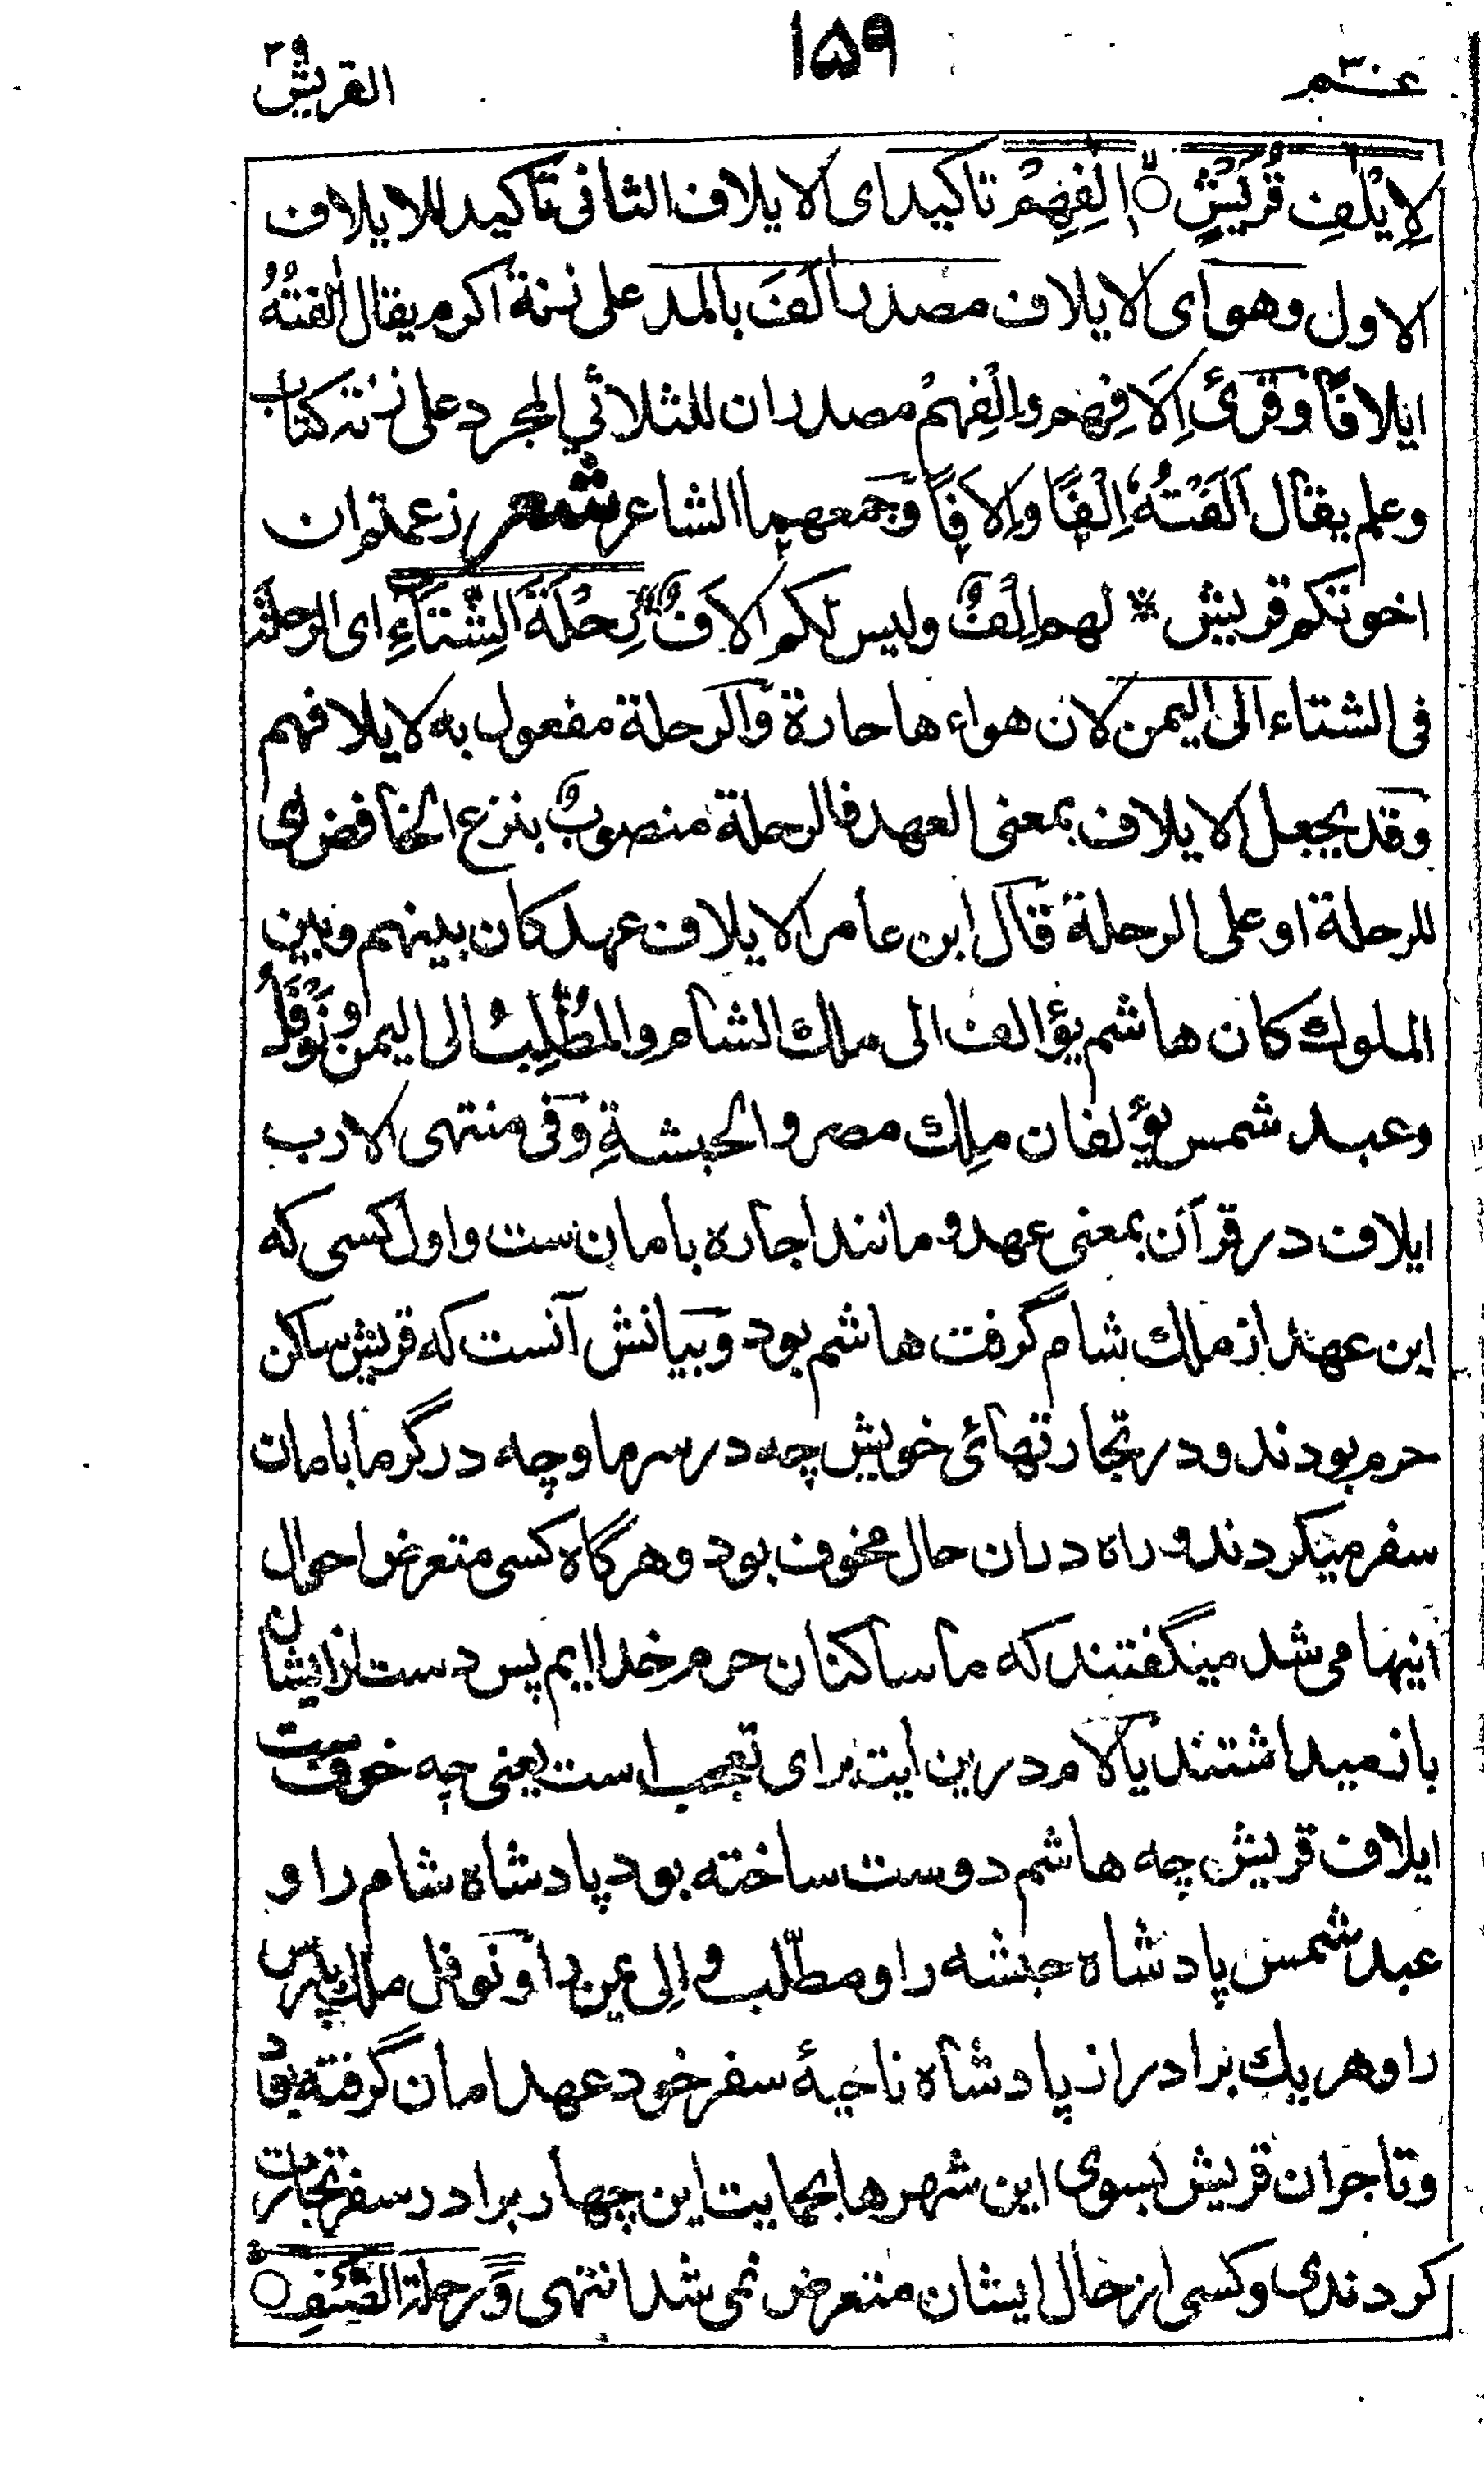 عم ٣٠
١٥٩
القريش ٢٩
لِاِيْلٰفِ قُرَيْشٍ ○ اٖلٰفِهِمْ تاكيد اى الايلاف الثانى تاكيد للايلاف
الاول وهو اى الايلاف مصدر اٰلَفَ بالمد على زنة اكرم يقال اٰلفتُهُ
ايلافًا وقرئ اِلَافِهِم واِلْفِهِمْ مصدران للثلاثي المجرد على زنة كتاب
وعلم يقال اَلَفْتُهُ اِلْفًا واِلَافًا وجمعهما الشاعر شعر زعمتم ان
اخوتكم قريش * لهم اِلْفٌ وليس لكم الَافٌ رِحْلَةَ الشِّتَاءِ اى الرحلة
فى الشتاء الى اليمن لان هواء ها حارة والرحلة مفعول به لايلافهم
وقد يجعل الايلاف بمعنى العهد فالرحلة منصوبٌ بنزع الخافض اى
للرحلة او على الرحلة قال ابن عامر الايلاف عهد كان بينهم وبين
الملوك كان هاشم يؤالف الى ملك الشام والمطَّلِبُ الى اليمن ونَوْفَلُ
وعبد شمس يؤلفان ملِك مصر والحبشةِ وفى منتهى الارب
ايلاف در قرآن بمعنى عهد و مانند اجاره بامان ست و اول كسى كه
اين عهد از ملك شام گرفت هاشم بود و بيانش آنست كه قريش ساكن
حرم بودند و در تجارتهائى خويش چه در سرما و چه در گرما بامان
سفر ميكردند و راه دران حال مخوف بود و هرگاه كسى متعرض احوال
اينها مى شد ميگفتند كه ما ساكنان حرم خدا ايم پس دست از ايشان
باز ميداشتند يا لام درين ايت براى تعجب است يعنى چه خوف ست
ايلاف قريش چه هاشم دوست ساخته بود پادشاه شام را و
عبد شمس پادشاه حبشه را و مطّلب والى يمن را و نوفل ملك پارس
را و هر يك برادر از پادشاه ناحيهٔ سفر خود عهد امان گرفته بود
و تاجران قريش بسوى اين شهرها بحمايت اين چهار برادر سفر تجارت
كردندى و كسى از حال ايشان متعرض نمى شد انتهى وَ رحلة الصَّيْفِ ○